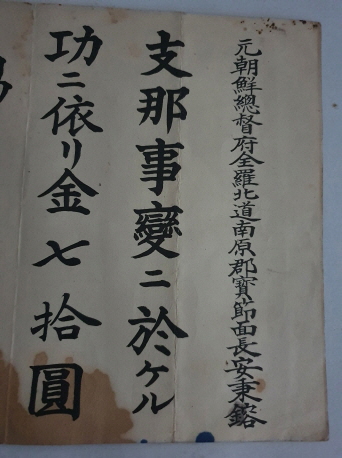 元朝鮮總督府全羅北道南原郡寶節面長安秉鎔
支那事變ニ於ケル
功ニ依リ金七拾圓